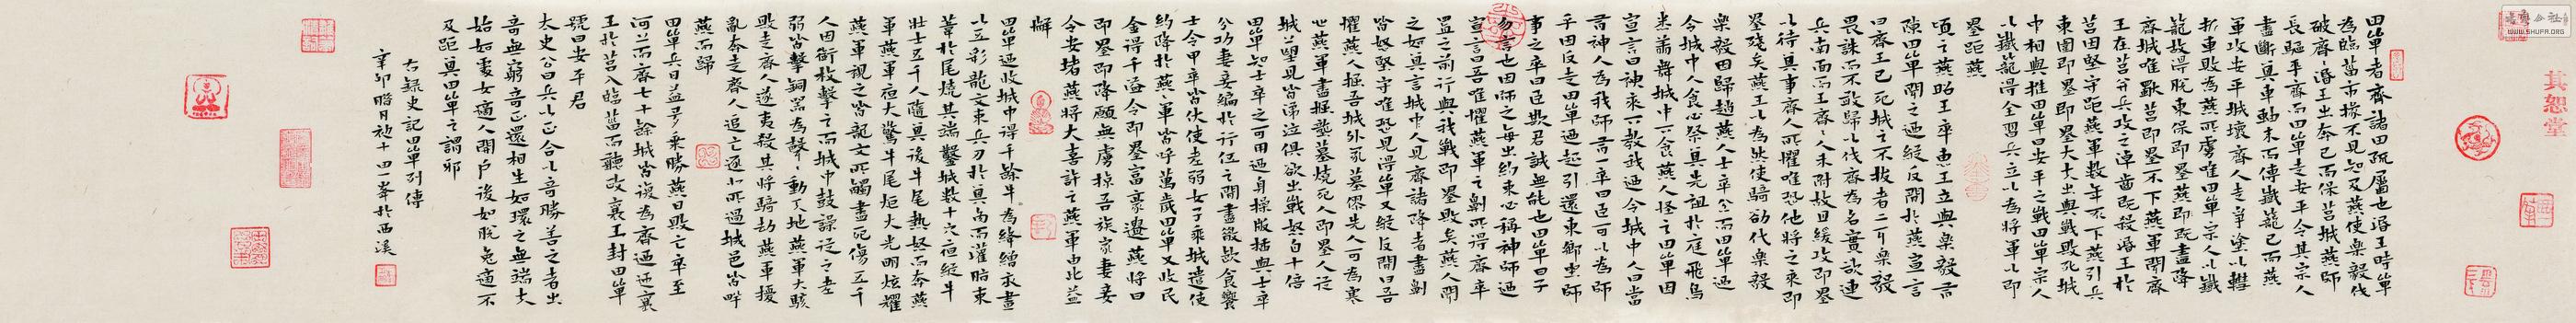 田單者齊諸田疏屬也湣王時單
為臨菑市掾不見知及燕使樂毅伐
破齊湣王出奔已而保莒城燕師
長驅平齊而田單走安平令其宗人
盡斷其車軸末而傅鐵籠已而燕
軍攻安平城壞齊人走爭塗以轊
折車敗為燕所虜唯田單宗人以鐵
籠故得脫東保即墨燕既盡降
齊城唯獨莒即墨不下燕軍聞齊
王在莒并兵攻之淖齒既殺湣王於
莒因堅守距燕軍數年不下燕引兵
東圍即墨即墨大夫出與戰敗死城
中相與推田單曰安平之戰田單宗人
以鐵籠得全習兵立以為將軍以即
墨距燕
頃之燕昭王卒惠王立與樂毅有
隙田單聞之迺縱反間於燕宣言
曰齊王已死城之不拔者二耳樂毅
畏誅而不敢歸以伐齊為名實欲連
兵南面而王齊齊人未附故且緩攻即墨
以待其事齊人所懼唯恐他將之來即
墨殘矣燕王以為然使騎劫代樂毅
樂毅因歸趙燕人士卒忿而田單迺
令城中人食必祭其先祖於庭飛鳥
悉翔舞城中下食燕人怪之田單因
宣言曰神來下教我迺令城中人曰當
有神人為我師有一卒曰臣可以為師
乎因反走田單迺起引還東鄉坐師
事之卒曰臣欺君誠無能也田單曰子
勿言也因師之每出約束必稱神師迺
宣言曰吾唯懼燕軍之劓所得齊卒
置之前行與我戰即墨敗矣燕人聞
之如其言城中人見齊諸降者盡劓
皆怒堅守唯恐見得單又縱反間曰吾
懼燕人掘吾城外冢墓僇先人可為寒
心燕軍盡掘壟墓燒死人即墨人從
城上望見皆涕泣俱欲出戰怒自十倍
田單知士卒之可用迺身操版插與士卒
分功妻妾編於行伍之間盡散飲食饗
士令甲卒皆伏使老弱女子乘城遣使
約降於燕燕軍皆呼萬歲田單又收民
金得千溢令即墨富豪遺燕將曰
即墨即降願無虜掠吾族家妻妾
令安堵燕將大喜許之燕軍由此益
懈
田單迺收城中得千餘牛為絳繒衣畫
以五彩龍文束兵刃於其角而灌脂束
葦於尾燒其端鑿城數十穴夜縱牛
壯士五千人隨其後牛尾熱怒而奔燕
軍燕軍夜大驚牛尾炬火光明炫耀
燕軍視之皆龍文所觸盡死傷五千
人因銜枚擊之而城中鼓譟從之老
弱皆擊銅器為聲聲動天地燕軍大駭
敗走齊人遂夷殺其將騎劫燕軍擾
亂奔走齊人追亡逐北所過城邑皆畔
燕而歸
田單兵日益多乘勝燕日敗亡卒至
河上而齊七十餘城皆復為齊迺迎襄
王於莒入臨菑而聽政襄王封田單
號曰安平君
太史公曰兵以正合以奇勝善之者出
奇無窮奇正還相生如環之無端夫
始如處女適人開戶後如脫兔適不
及距其田單之謂邪
右錄史記田單列傳
辛卯臘月初十四一峯於西溪
其恕堂
WWW.SHUFR.ORG